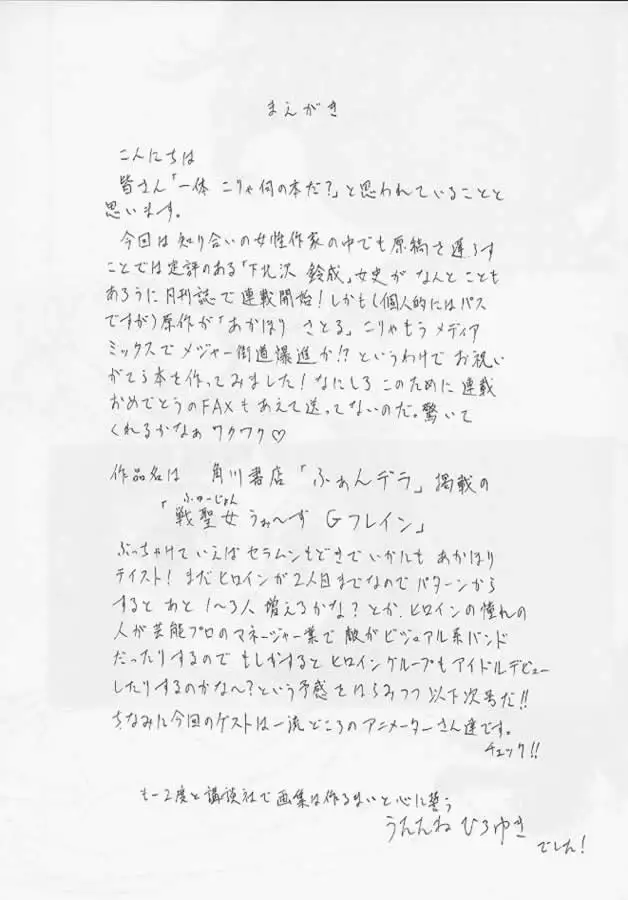 まえがき
こんにちは
皆さん「一体 こりゃ何の本だ?」と思われていることと
思います。
今回は知り合いの女性作家の中でも原稿を遅らす
ことでは定評のある「下北沢 鈴成」女史が なんと こともあ
ろうに 月刊誌で連載開始! しかも(個人的にはパス
ですが)原作が「あかほり さとる」こりゃもう メディア
ミックスで メジャー街道爆進か!? というわけで お祝い
がてら本を作ってみました! なにしろ このために 連載
おめでとうのFAXもあえて送ってないのだ。驚いて
くれるかなぁ ワクワク♡
作品名は 角川書店「ふぁんデラ」掲載の
ふゅーじょん
「戦聖女 うぉ〜ず Gフレイン」
ぶっちゃけていえば セラムンもどきで いかにも あかほり
テイスト! まだヒロインが2人目までなので パターンから
すると あと 1〜3人 増えるかな? とか、ヒロインの憧れの
人が芸能プロのマネージャー業で 敵がビジュアル系バンド
だったりするので もしかすると ヒロイングループもアイドルデビュー
したりするのかな〜? という予感をはらみつつ 以下次号だ!!
ちなみに今回のゲストは一流どころのアニメーターさん達です。
チェック!!
もー2度と講談社で画集は作るまいと心に誓う
うたたねひろゆき
でした!